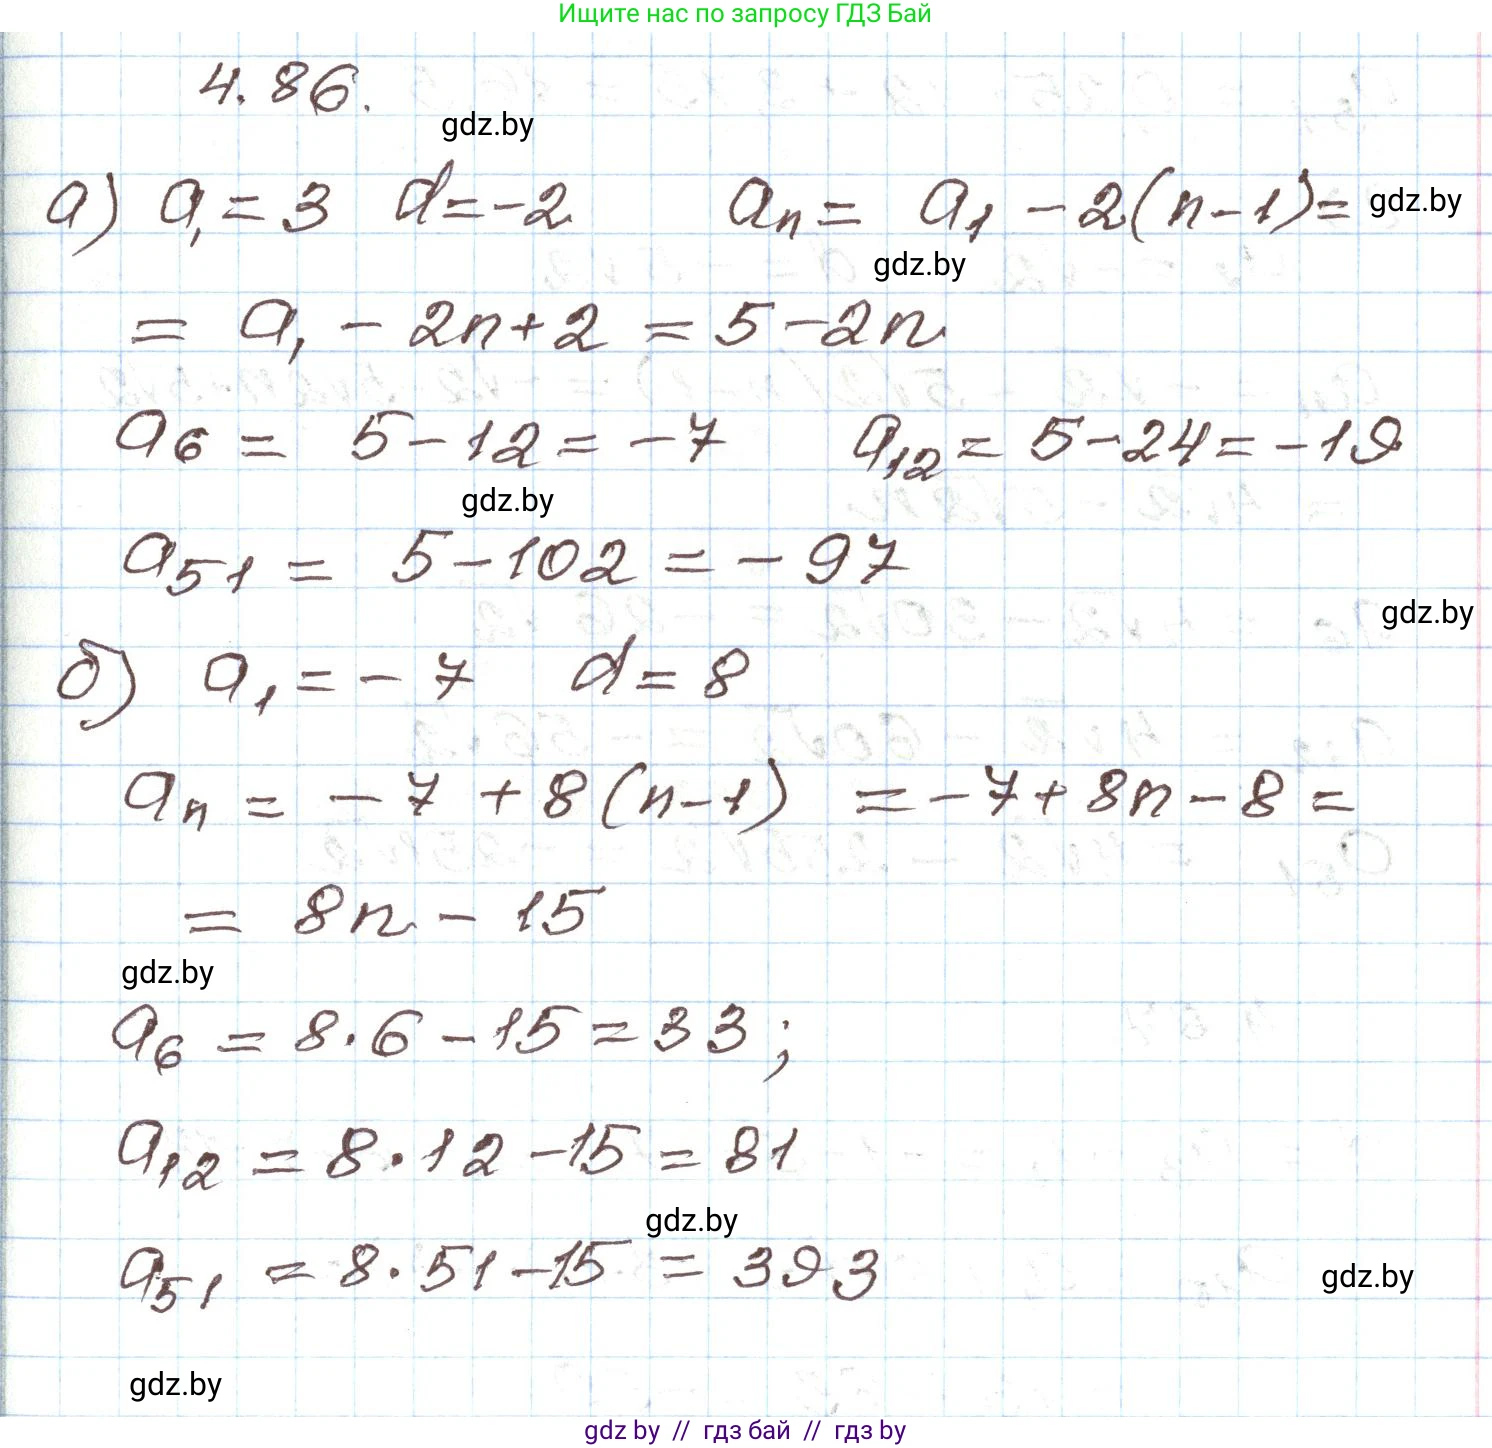 Ищите нас по запросу ГДЗ Бай
4.86.
gdz.by
а) a₁ = 3 d = -2 aₙ = a₁ - 2(n-1) = gdz.by
gdz.by
= a₁ - 2n + 2 = 5 - 2n
a₆ = 5 - 12 = -7 a₁₂ = 5 - 24 = -19
gdz.by
a₅₁ = 5 - 102 = -97
gdz.by
б) a₁ = -7 d = 8
aₙ = -7 + 8(n-1) = -7 + 8n - 8 =
= 8n - 15
gdz.by
a₆ = 8·6 - 15 = 33;
a₁₂ = 8·12 - 15 = 81
gdz.by
a₅₁ = 8·51 - 15 = 393
gdz.by
gdz.by
gdz by // гдз бай // gdz by